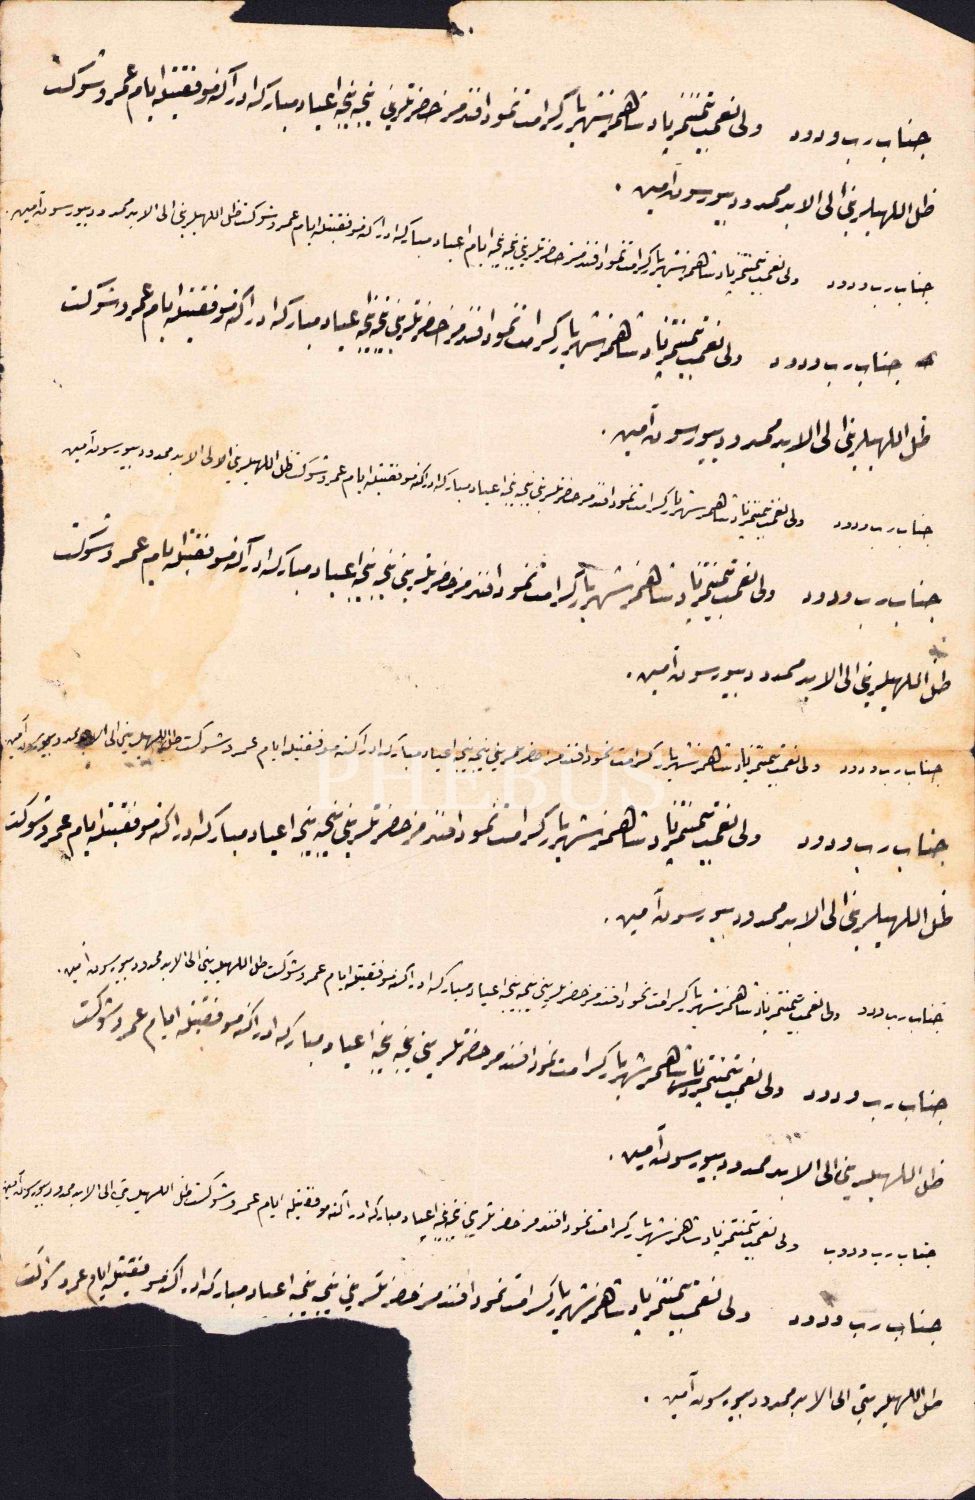 جناب رب ودود ولی نعمت بیمنتمز پادشاهمز شهریار کرامتنمود افندمز حضرتلرینی نیجه نیجه اعیاد مبارکه ادراکنه موفقیتله ایام عمر و شوکت
ظل اللهیلرینی الی الابد ممدود بیورسون آمین .
جناب رب ودود ولی نعمت بیمنتمز پادشاهمز شهریار کرامتنمود افندمز حضرتلرینی نیجه نیجه ایام اعیاد مبارکه ادراکنه موفقیتله ایام عمر و شوکت ظل اللهیلرینی الی الابد ممدود بیورسون آمین .
جناب رب ودود ولی نعمت بیمنتمز پادشاهمز شهریار کرامتنمود افندمز حضرتلرینی نیجه نیجه اعیاد مبارکه ادراکنه موفقیتله ایام عمر و شوکت
ظل اللهیلرینی الی الابد ممدود بیورسون آمین .
جناب رب ودود ولی نعمت بیمنتمز پادشاهمز شهریار کرامتنمود افندمز حضرتلرینی نیجه نیجه اعیاد مبارکه ادراکنه موفقیتله ایام عمر و شوکت ظل اللهیلرینی الی الابد ممدود بیورسون آمین
جناب رب ودود ولی نعمت بیمنتمز پادشاهمز شهریار کرامتنمود افندمز حضرتلرینی نیجه نیجه اعیاد مبارکه ادراکنه موفقیتله ایام عمر و شوکت
ظل اللهیلرینی الی الابد ممدود بیورسون آمین .
جناب رب ودود ولی نعمت بیمنتمز پادشاهمز شهریار کرامتنمود افندمز حضرتلرینی نیجه نیجه اعیاد مبارکه ادراکنه موفقیتله ایام عمر و شوکت ظل اللهیلرینی الی الابد ممدود بیورسون آمین
PHEBUS
جناب رب ودود ولی نعمت بیمنتمز پادشاهمز شهریار کرامتنمود افندمز حضرتلرینی نیجه نیجه اعیاد مبارکه ادراکنه موفقیتله ایام عمر و شوکت
ظل اللهیلرینی الی الابد ممدود بیورسون آمین .
جناب رب ودود ولی نعمت بیمنتمز پادشاهمز شهریار کرامتنمود افندمز حضرتلرینی نیجه نیجه اعیاد مبارکه ادراکنه موفقیتله ایام عمر و شوکت ظل اللهیلرینی الی الابد ممدود بیورسون آمین .
جناب رب ودود ولی نعمت بیمنتمز پادشاهمز شهریار کرامتنمود افندمز حضرتلرینی نیجه نیجه اعیاد مبارکه ادراکنه موفقیتله ایام عمر و شوکت
ظل اللهیلرینی الی الابد ممدود بیورسون آمین .
جناب رب ودود ولی نعمت بیمنتمز پادشاهمز شهریار کرامتنمود افندمز حضرتلرینی نیجه نیجه اعیاد مبارکه ادراکنه موفقیتله ایام عمر و شوکت ظل اللهیلرینی الی الابد ممدود بیورسون آمین
جناب رب ودود ولی نعمت بیمنتمز پادشاهمز شهریار کرامتنمود افندمز حضرتلرینی نیجه نیجه اعیاد مبارکه ادراکنه موفقیتله ایام عمر و شوکت
ظل اللهیلرینی الی الابد ممدود بیورسون آمین .